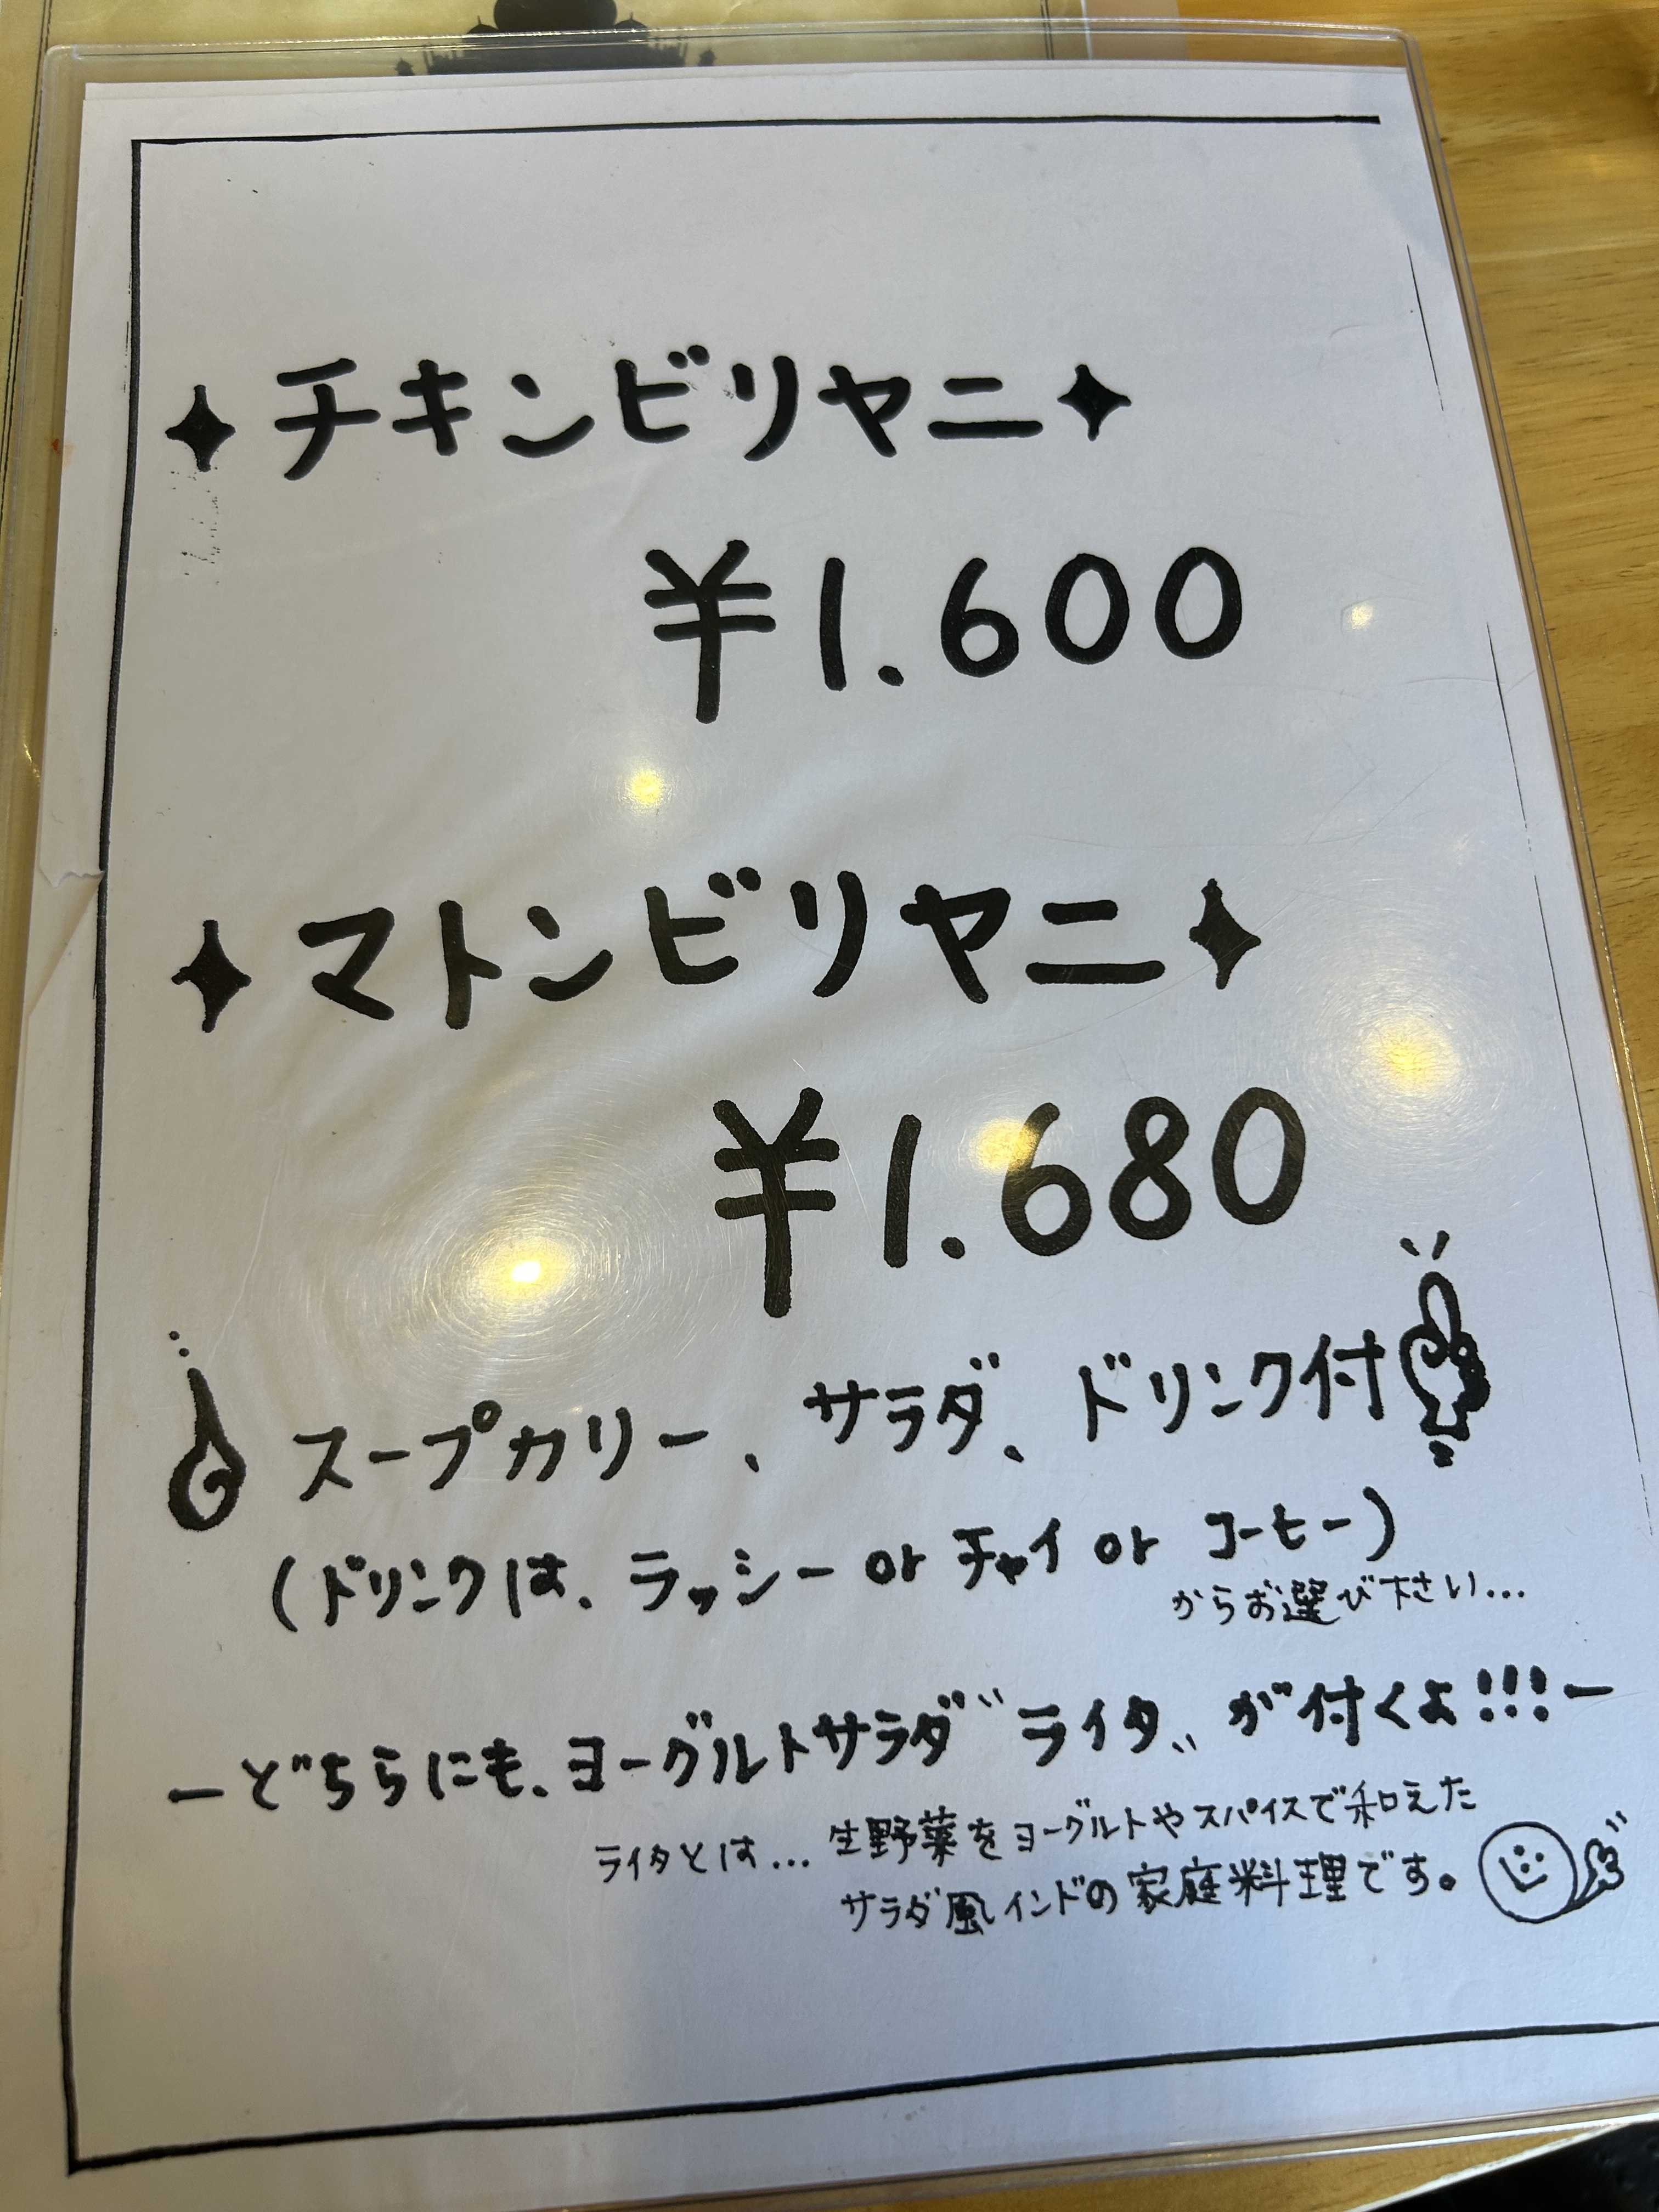 ✦チキンビリヤニ✦
¥1.600
✦マトンビリヤニ✦
¥1.680
スープカリー、サラダ、ドリンク付
(ドリンクは、ラッシー or チャイ or コーヒー)
からお選び下さい...
ーどちらにも、ヨーグルトサラダ〝ライタ〟が付くよ!!!ー
ライタとは... 生野菜をヨーグルトやスパイスで和えた
サラダ風インドの家庭料理です。